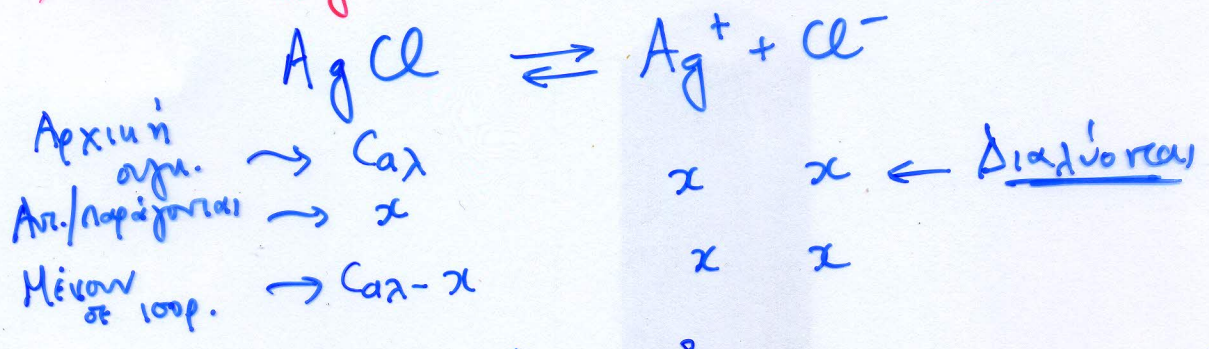 AgCl ⇌ Ag⁺ + Cl⁻
Αρχική
συγκ. → Cαλ
x x ← Διαλύονται
Αντ./παράγονται → x
x x
Μένουν
σε ισορ. → Cαλ - x